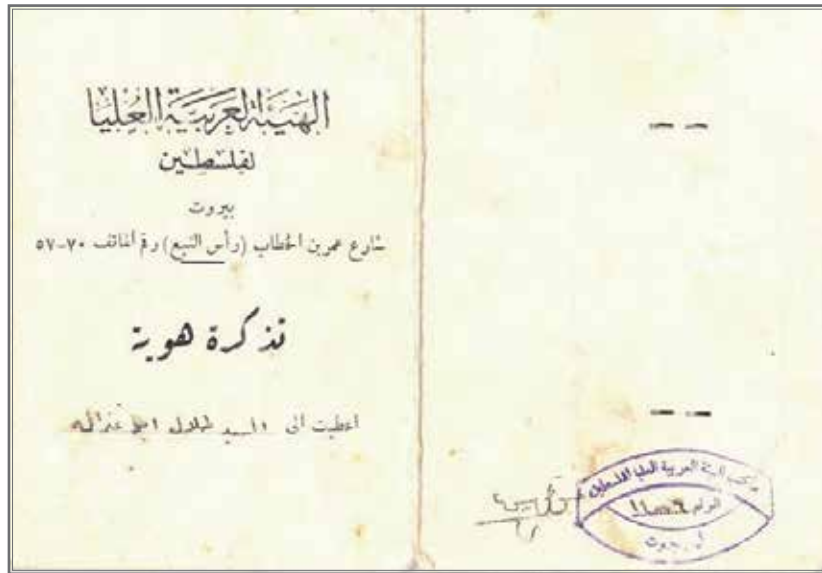 الهيئة العربية العليا
لفلسطين
بيروت
شارع عمر بن الخطاب (رأس النبع) رقم الهاتف ٧٠-٥٧
تذكرة هوية
اعطيت الى السيد طلال
مكتب الهيئة العربية العليا لفلسطين
الرقم
في بيروت